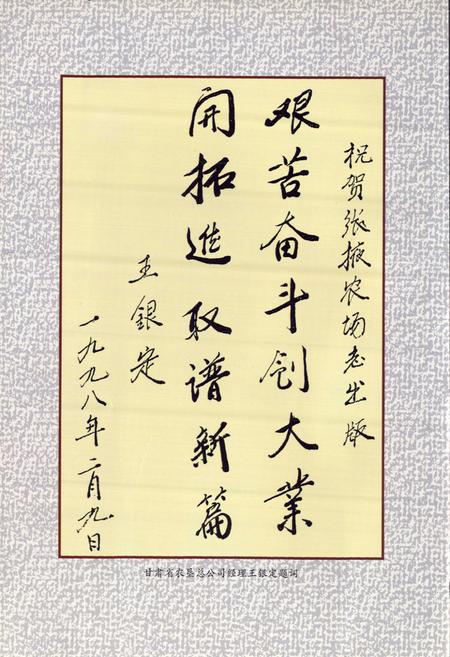 祝贺张掖农场志出版
艰苦奋斗创大业
開拓進取谱新篇
王银定
一九九八年二月九日
甘肃省农垦总公司经理王银定题词